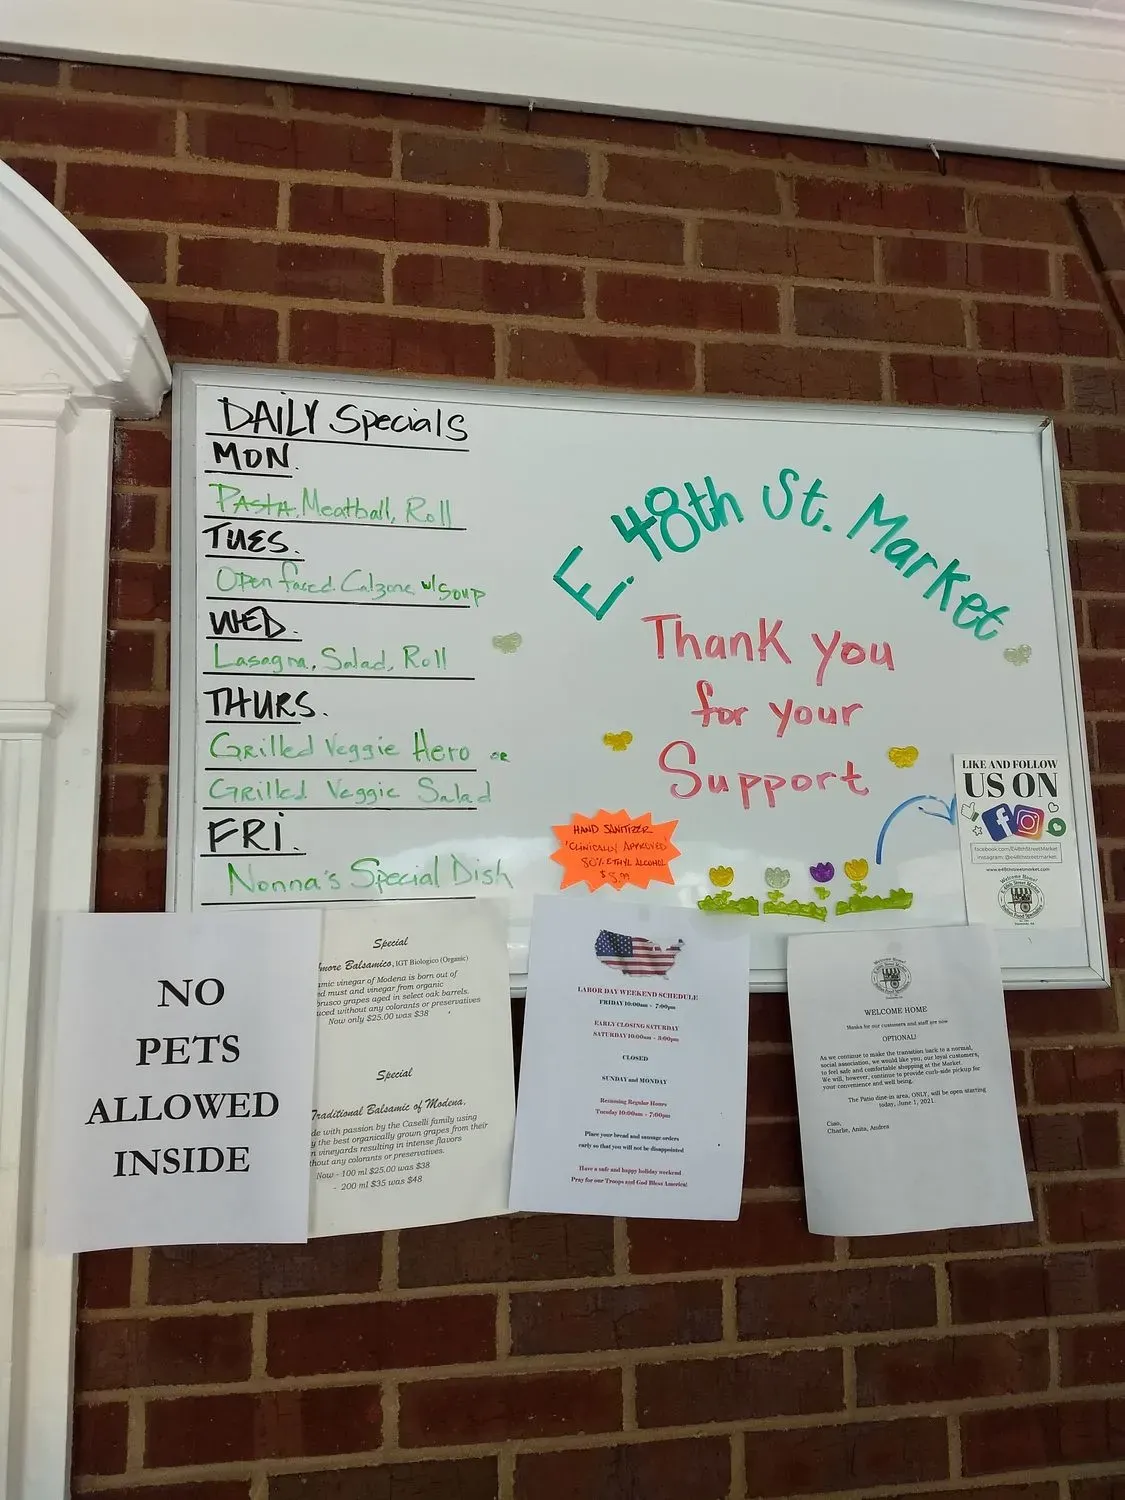 DAILY Specials
MON.
PASTA, Meatball, Roll
TUES.
Open faced Calzone w/ Soup
WED.
Lasagna, Salad, Roll
THURS.
Grilled Veggie Hero or
Grilled Veggie Salad
FRI.
Nonna's Special Dish
E. 48th St. Market
Thank you
for your
Support
HAND SANITIZER
"CLINICALLY APPROVED"
80% ETHYL ALCOHOL
LIKE AND FOLLOW
US ON
facebook.com/E48thStreetMarket
instagram: @e48thstreetmarket
www.e48thstreetmarket.com
Welcome Home!
E. 48th Street Market
Italian Food Specialties
NO
PETS
ALLOWED
INSIDE
Special
Balsamico, IGT Biologico (Organic)
vinegar of Modena is born out of
must and vinegar from organic
grapes aged in select oak barrels.
without any colorants or preservatives
Now only $25.00 was $38
Special
Traditional Balsamic of Modena,
with passion by the Caselli family using
the best organically grown grapes from their
vineyards resulting in intense flavors
any colorants or preservatives.
Now - 100 ml $25.00 was $38
- 200 ml $35 was $48
LABOR DAY WEEKEND SCHEDULE
FRIDAY 10:00am - 7:00pm
EARLY CLOSING SATURDAY
SATURDAY 10:00am - 3:00pm
CLOSED
SUNDAY and MONDAY
Resuming Regular Hours
Tuesday 10:00am - 7:00pm
Place your bread and sausage orders
early so that you will not be disappointed
Have a safe and happy holiday weekend
Pray for our Troops and God Bless America!
WELCOME HOME
Masks for our customers and staff are now
OPTIONAL!
As we continue to make the transition back to a normal,
social association, we would like you, our loyal customers,
to feel safe and comfortable shopping at the Market.
We will, however, continue to provide curb-side pickup for
your convenience and well being.
The Patio dine-in area, ONLY, will be open starting
today, June 1, 2021.
Ciao,
Charlie, Anita, Andrea